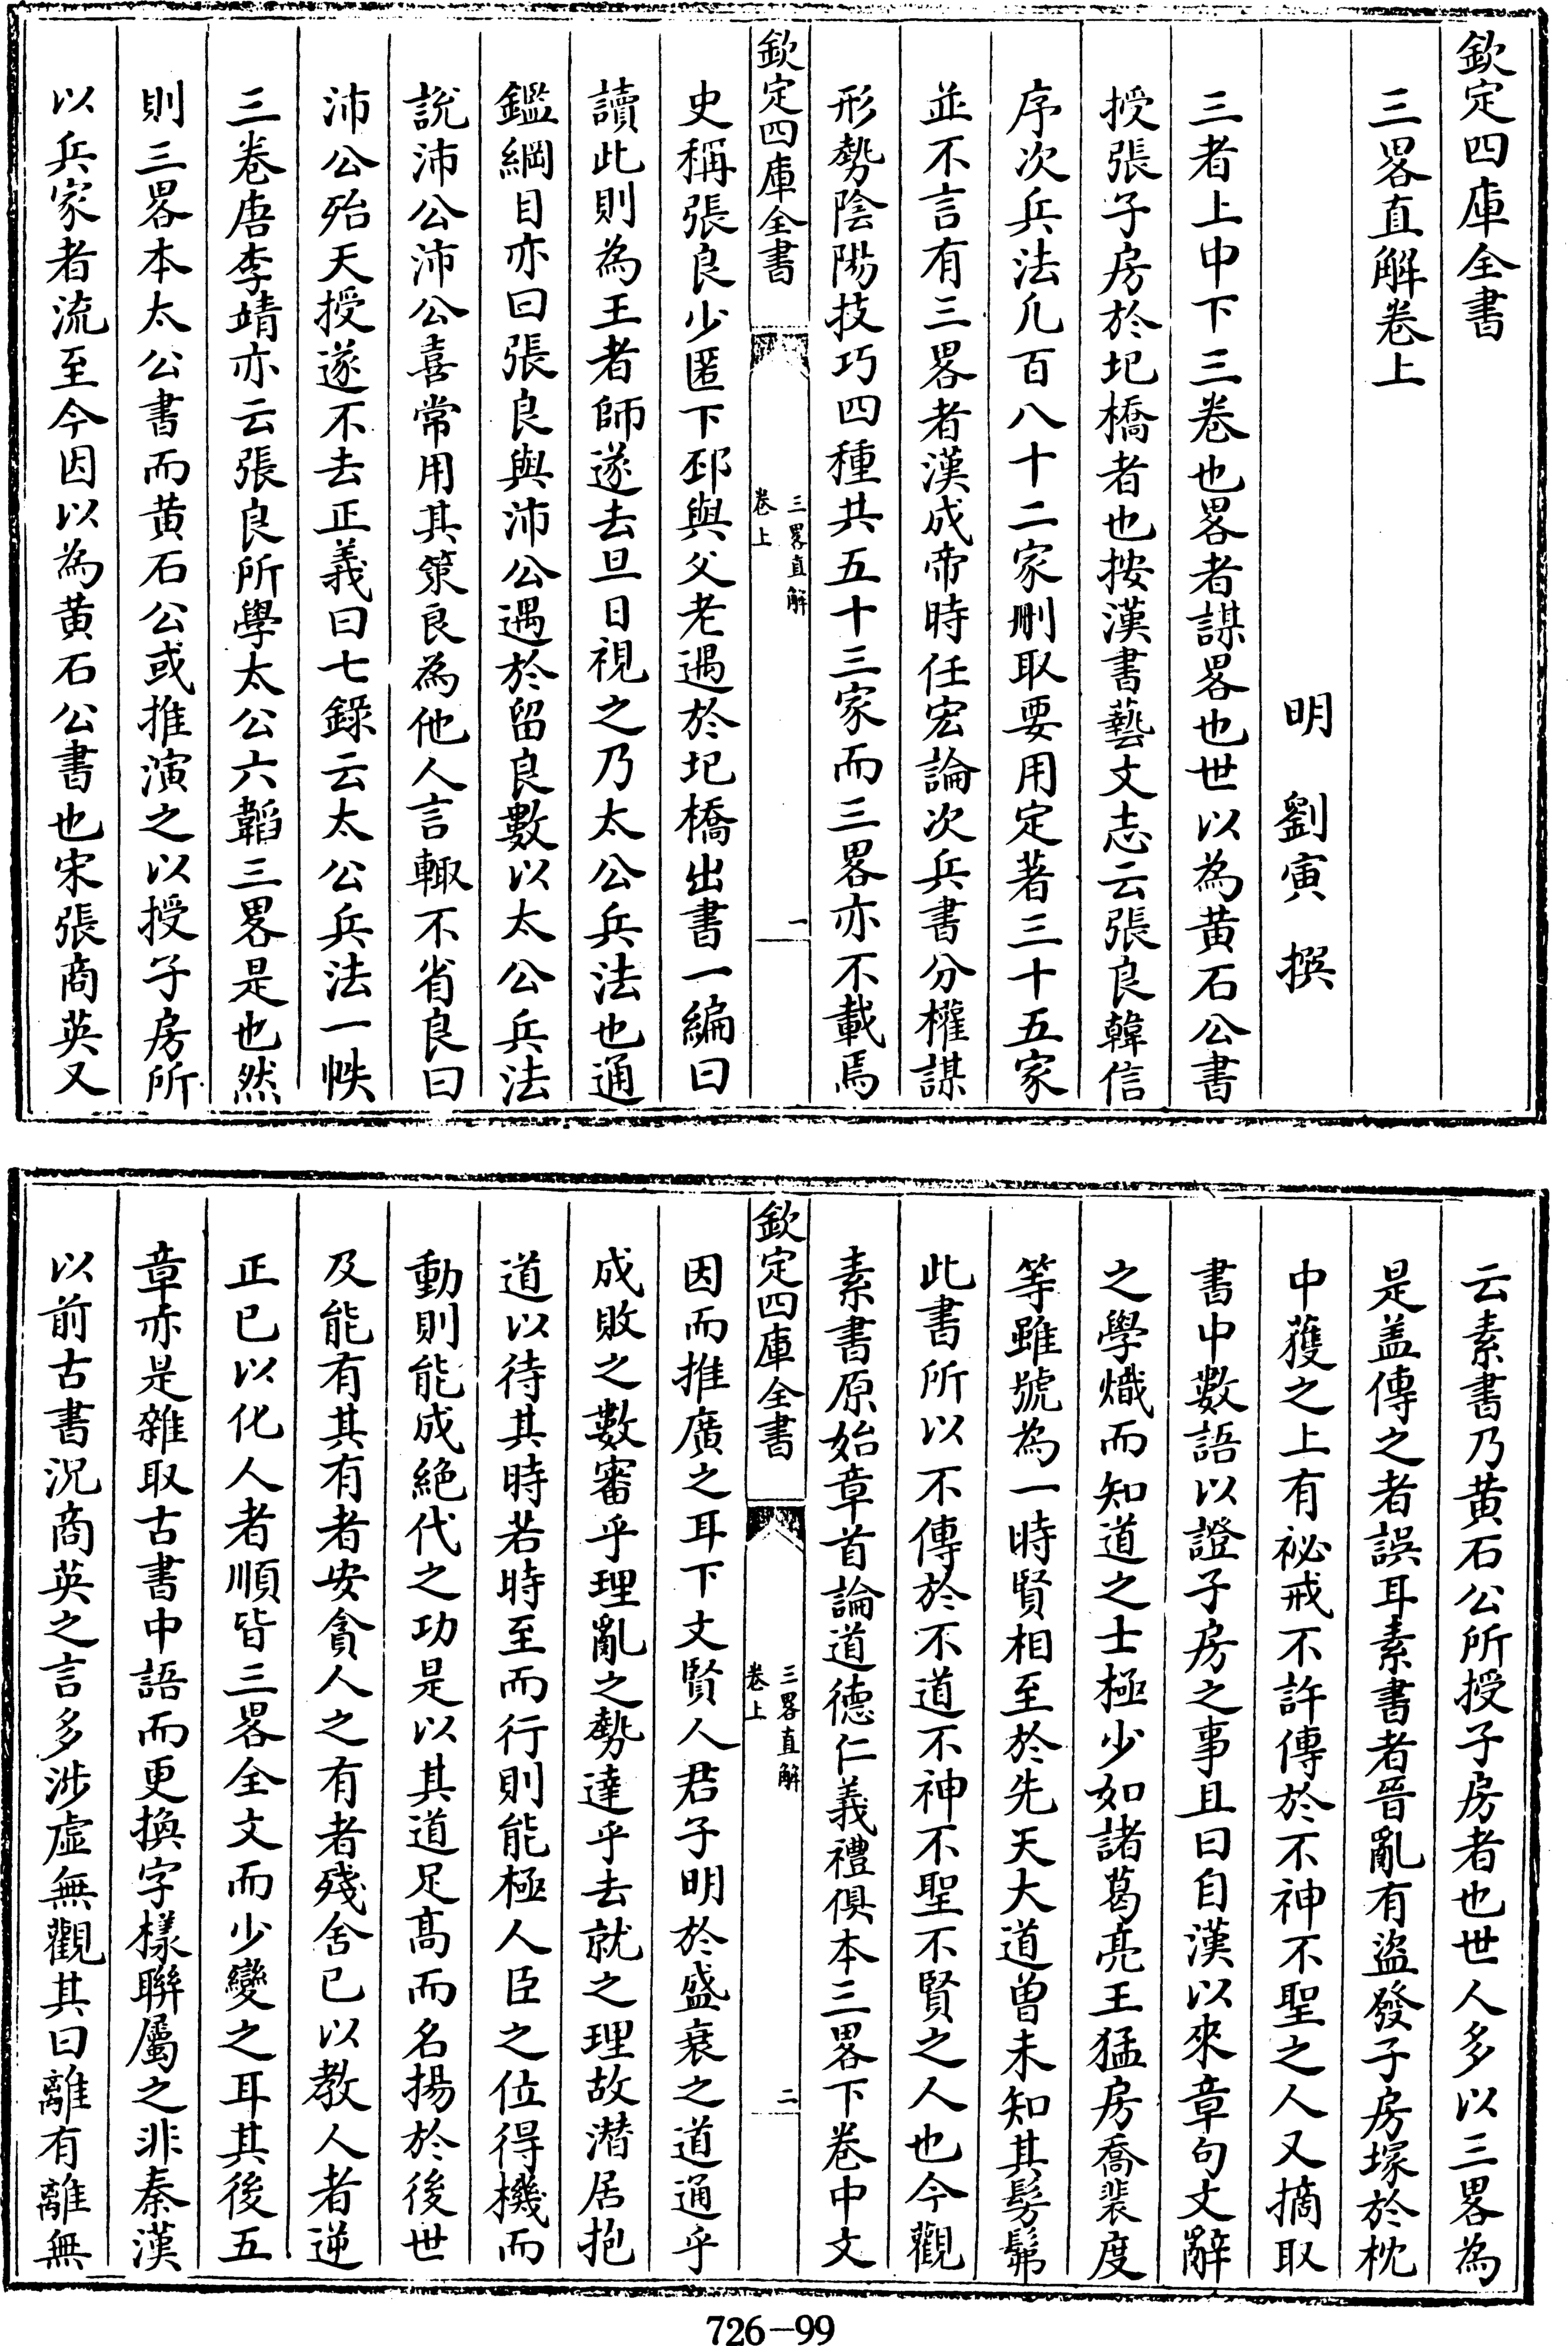 欽定四庫全書
三畧直解卷上
明　劉寅　撰
三者上中下三卷也畧者謀畧也世以為黄石公書
授張子房於圯橋者也按漢書藝文志云張良韓信
序次兵法凡百八十二家刪取要用定著三十五家
並不言有三畧者漢成帝時任宏論次兵書分權謀
形勢陰陽技巧四種共五十三家而三畧亦不載焉
欽定四庫全書
三畧直解
卷上
一
史稱張良少匿下邳與父老遇於圯橋出書一編曰
讀此則為王者師遂去旦日視之乃太公兵法也通
鑑綱目亦曰張良與沛公遇於留良數以太公兵法
說沛公沛公喜常用其策良為他人言輒不省良曰
沛公殆天授遂不去正義曰七錄云太公兵法一帙
三卷唐李靖亦云張良所學太公六韜三畧是也然
則三畧本太公書而黄石公或推演之以授子房所
以兵家者流至今因以為黄石公書也宋張商英又
云素書乃黄石公所授子房者也世人多以三畧為
是盖傳之者誤耳素書者晉亂有盜發子房塚於枕
中獲之上有祕戒不許傳於不神不聖之人又摘取
書中數語以證子房之事且曰自漢以來章句文辭
之學熾而知道之士極少如諸葛亮王猛房喬裴度
等雖號為一時賢相至於先天大道曾未知其髣髴
此書所以不傳於不道不神不聖不賢之人也今觀
素書原始章首論道德仁義禮俱本三畧下卷中文
欽定四庫全書
三畧直解
卷上
二
因而推廣之耳下文賢人君子明於盛衰之道通乎
成敗之數審乎理亂之勢達乎去就之理故潛居抱
道以待其時若時至而行則能極人臣之位得機而
動則能成絕代之功是以其道足高而名揚於後世
及能有其有者安貪人之有者殘舍已以教人者逆
正已以化人者順皆三畧全文而少變之耳其後五
章亦是雜取古書中語而更換字樣聯屬之非秦漢
以前古書況商英之言多涉虛無觀其曰離有離無
726-99